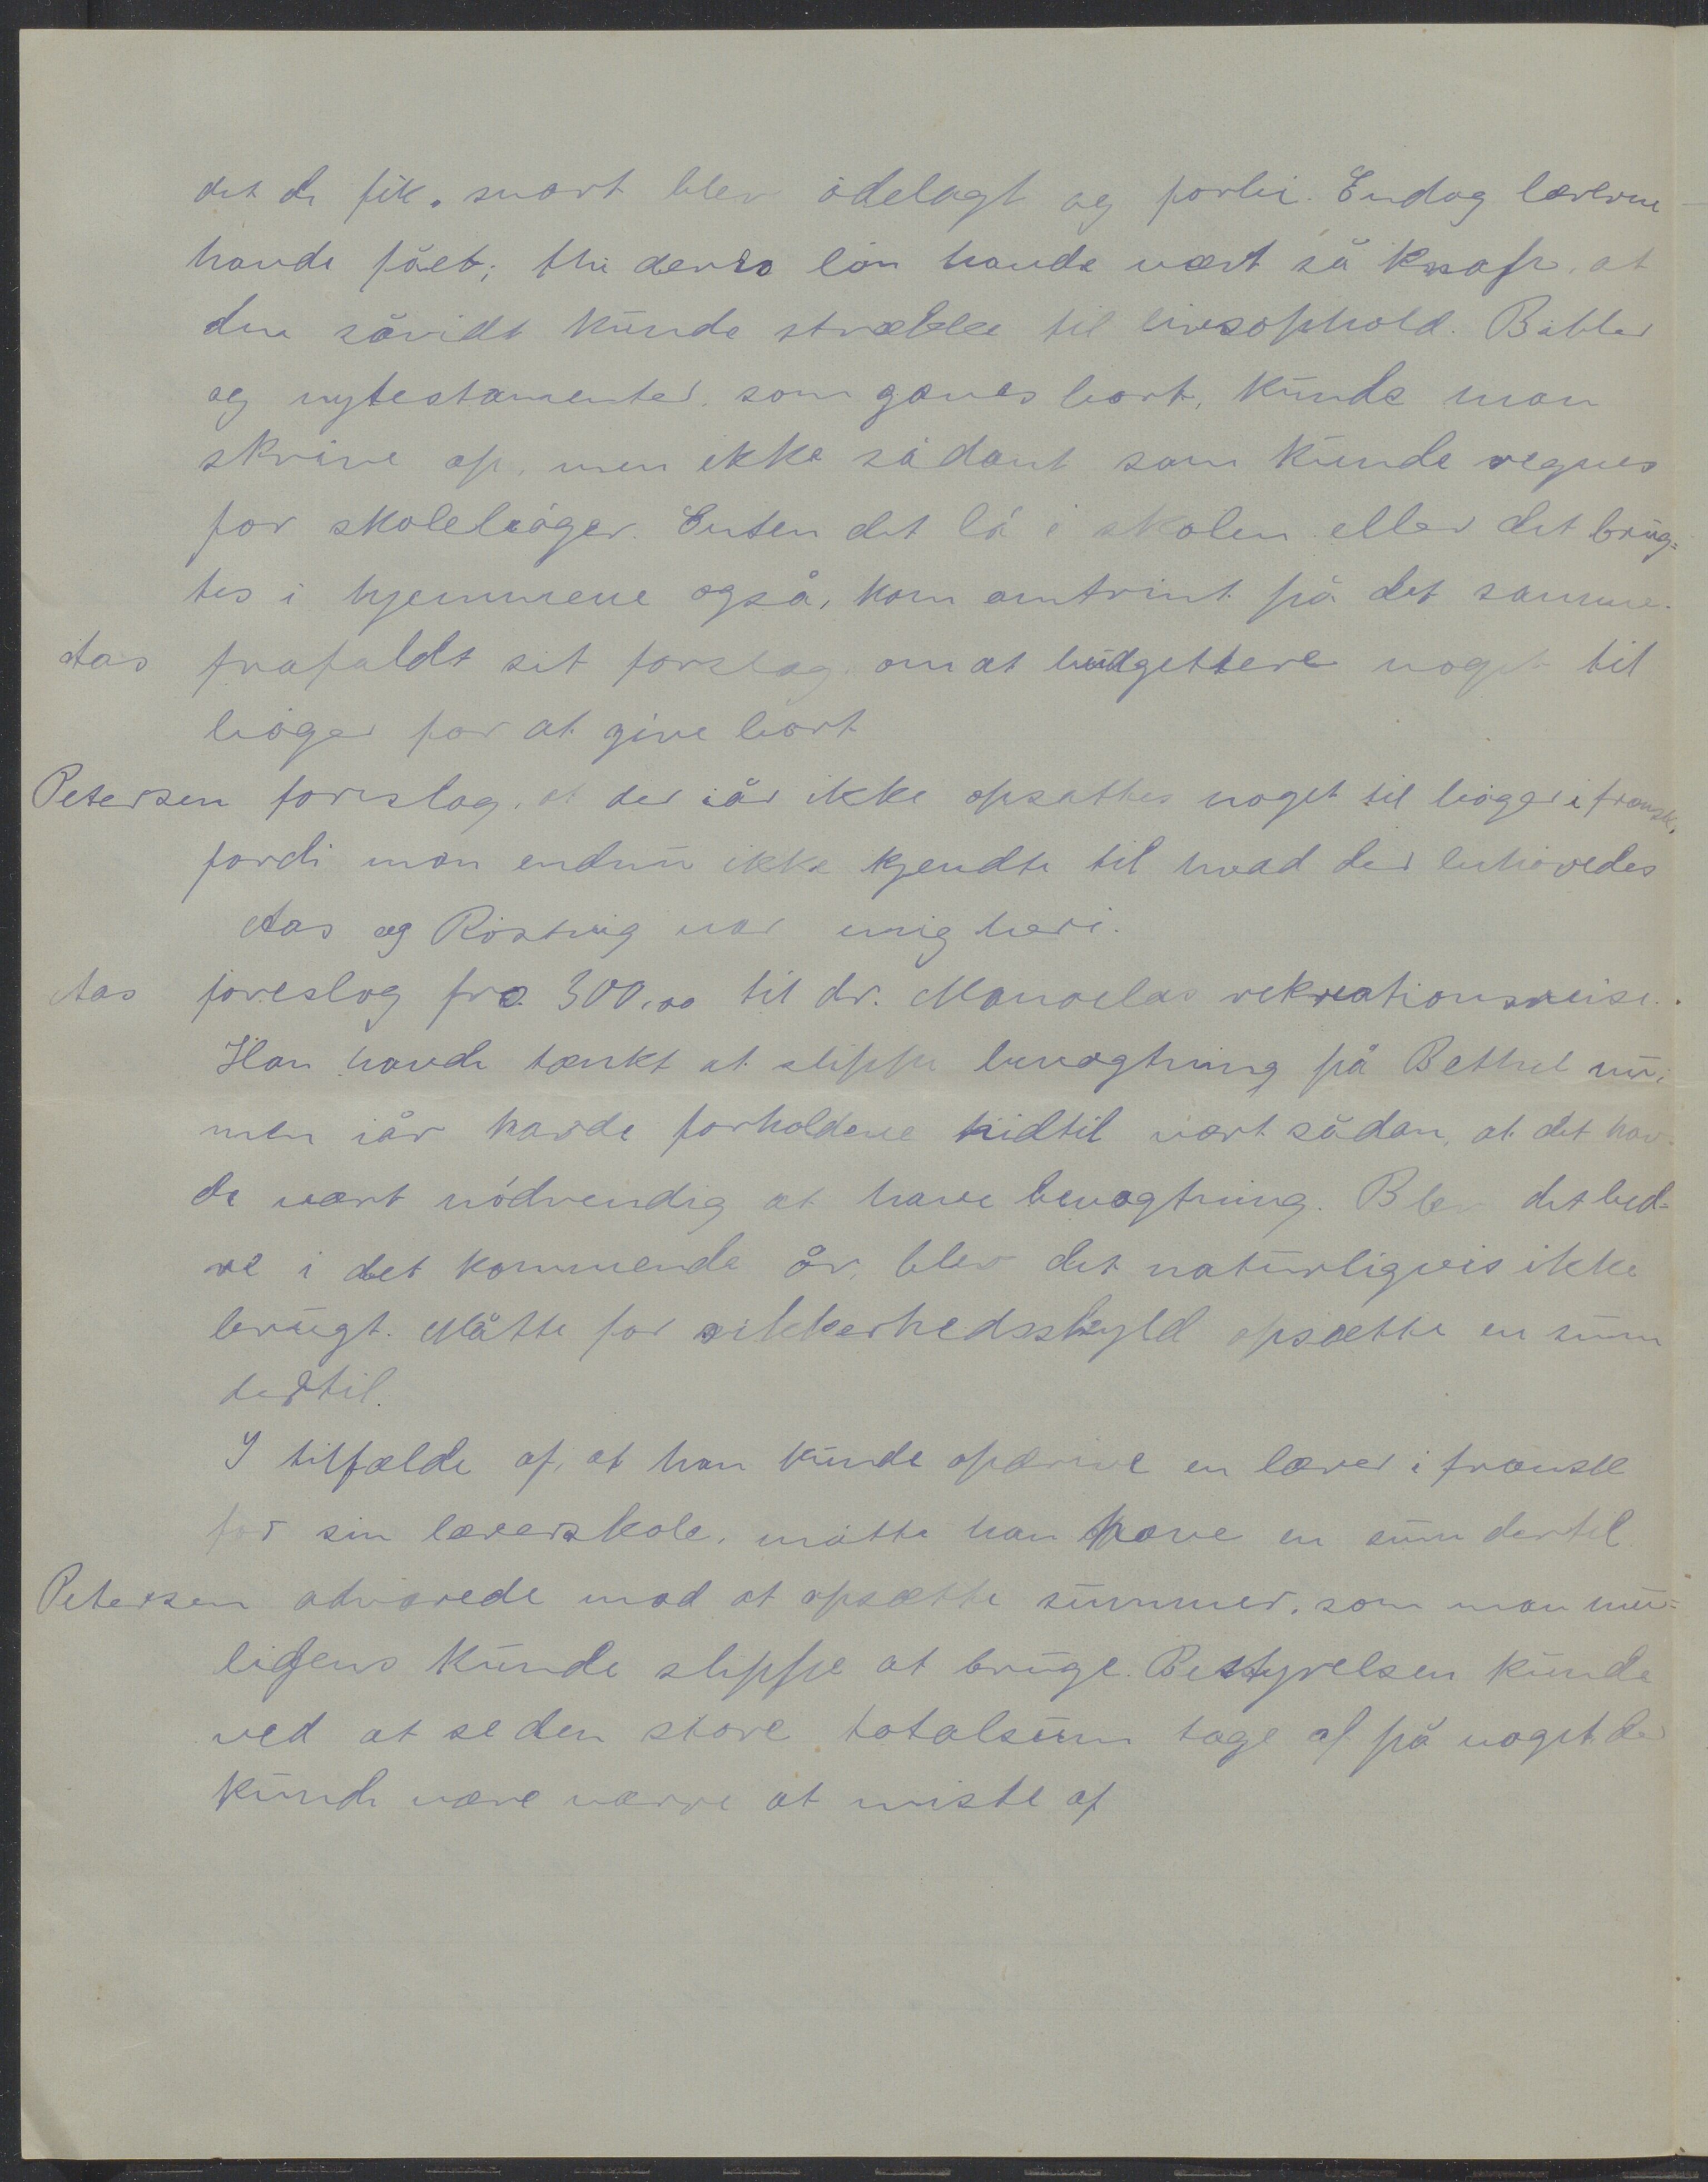 det de fik, snart blev ödelagt og forbi. Endog lærerne
havde fået; thi deres lön havde vært så knap, at
den såvidt kunde strække til livsophold. Bibler
og nytestamenter, som gaves bort, kunde man
skrive op, men ikke sådant som kunde regnes
for skolebøger. Enten det lå i skolen eller det brug=
tes i hjemmene også, kom omtrint på det samme.
Aas frafaldt sit forslag om at budgettere noget til
bøger for at give bort
Petersen foreslog, at der iår ikke opsattes noget til bøger i fransk,
fordi man endnu ikke kjendte til hvad der behövedes
Aas og Röstvig var enig heri.
Aas foreslog frc. 300,00 til dr. Manoelas rekreationsreise.
Han havde tænkt at slippe bevogtning på Bethel nu;
men iår havde forholdene hidtil vært sådan, at det hav-
de vært nödvendig at have bevogtning. Blev det bed=
re i det kommende år, blev det naturligvis ikke
brugt. Måtte for sikkerhedsskyld opsætte en sum
dertil.
I tilfælde af, at han kunde opdrive en lærer i fransk
for sin lærerskole, måtte han have en sum dertil
Petersen advarede mod at opsætte summer, som man mu=
ligens kunde slippe at bruge. Bestyrelsen kunde
ved at se den store totalsum tage af på noget der
kunde være værre at miste af